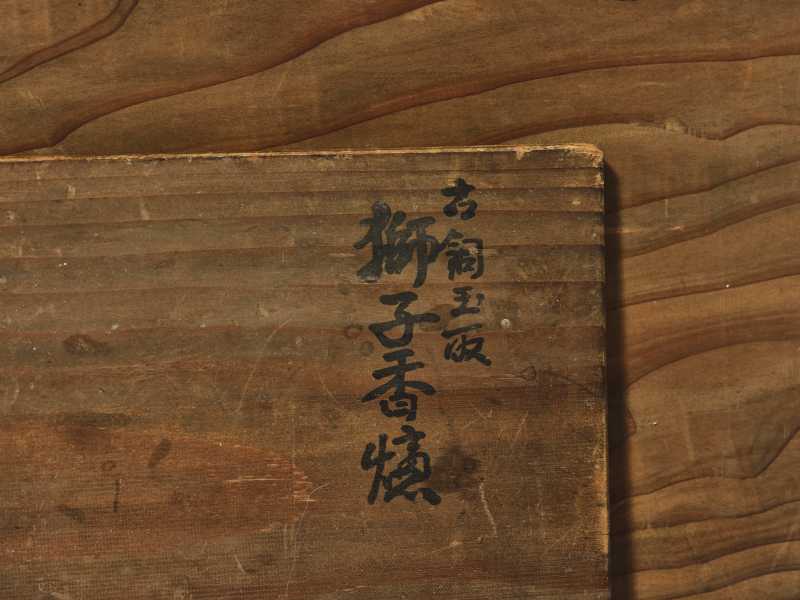 古銅玉取
獅子香爐